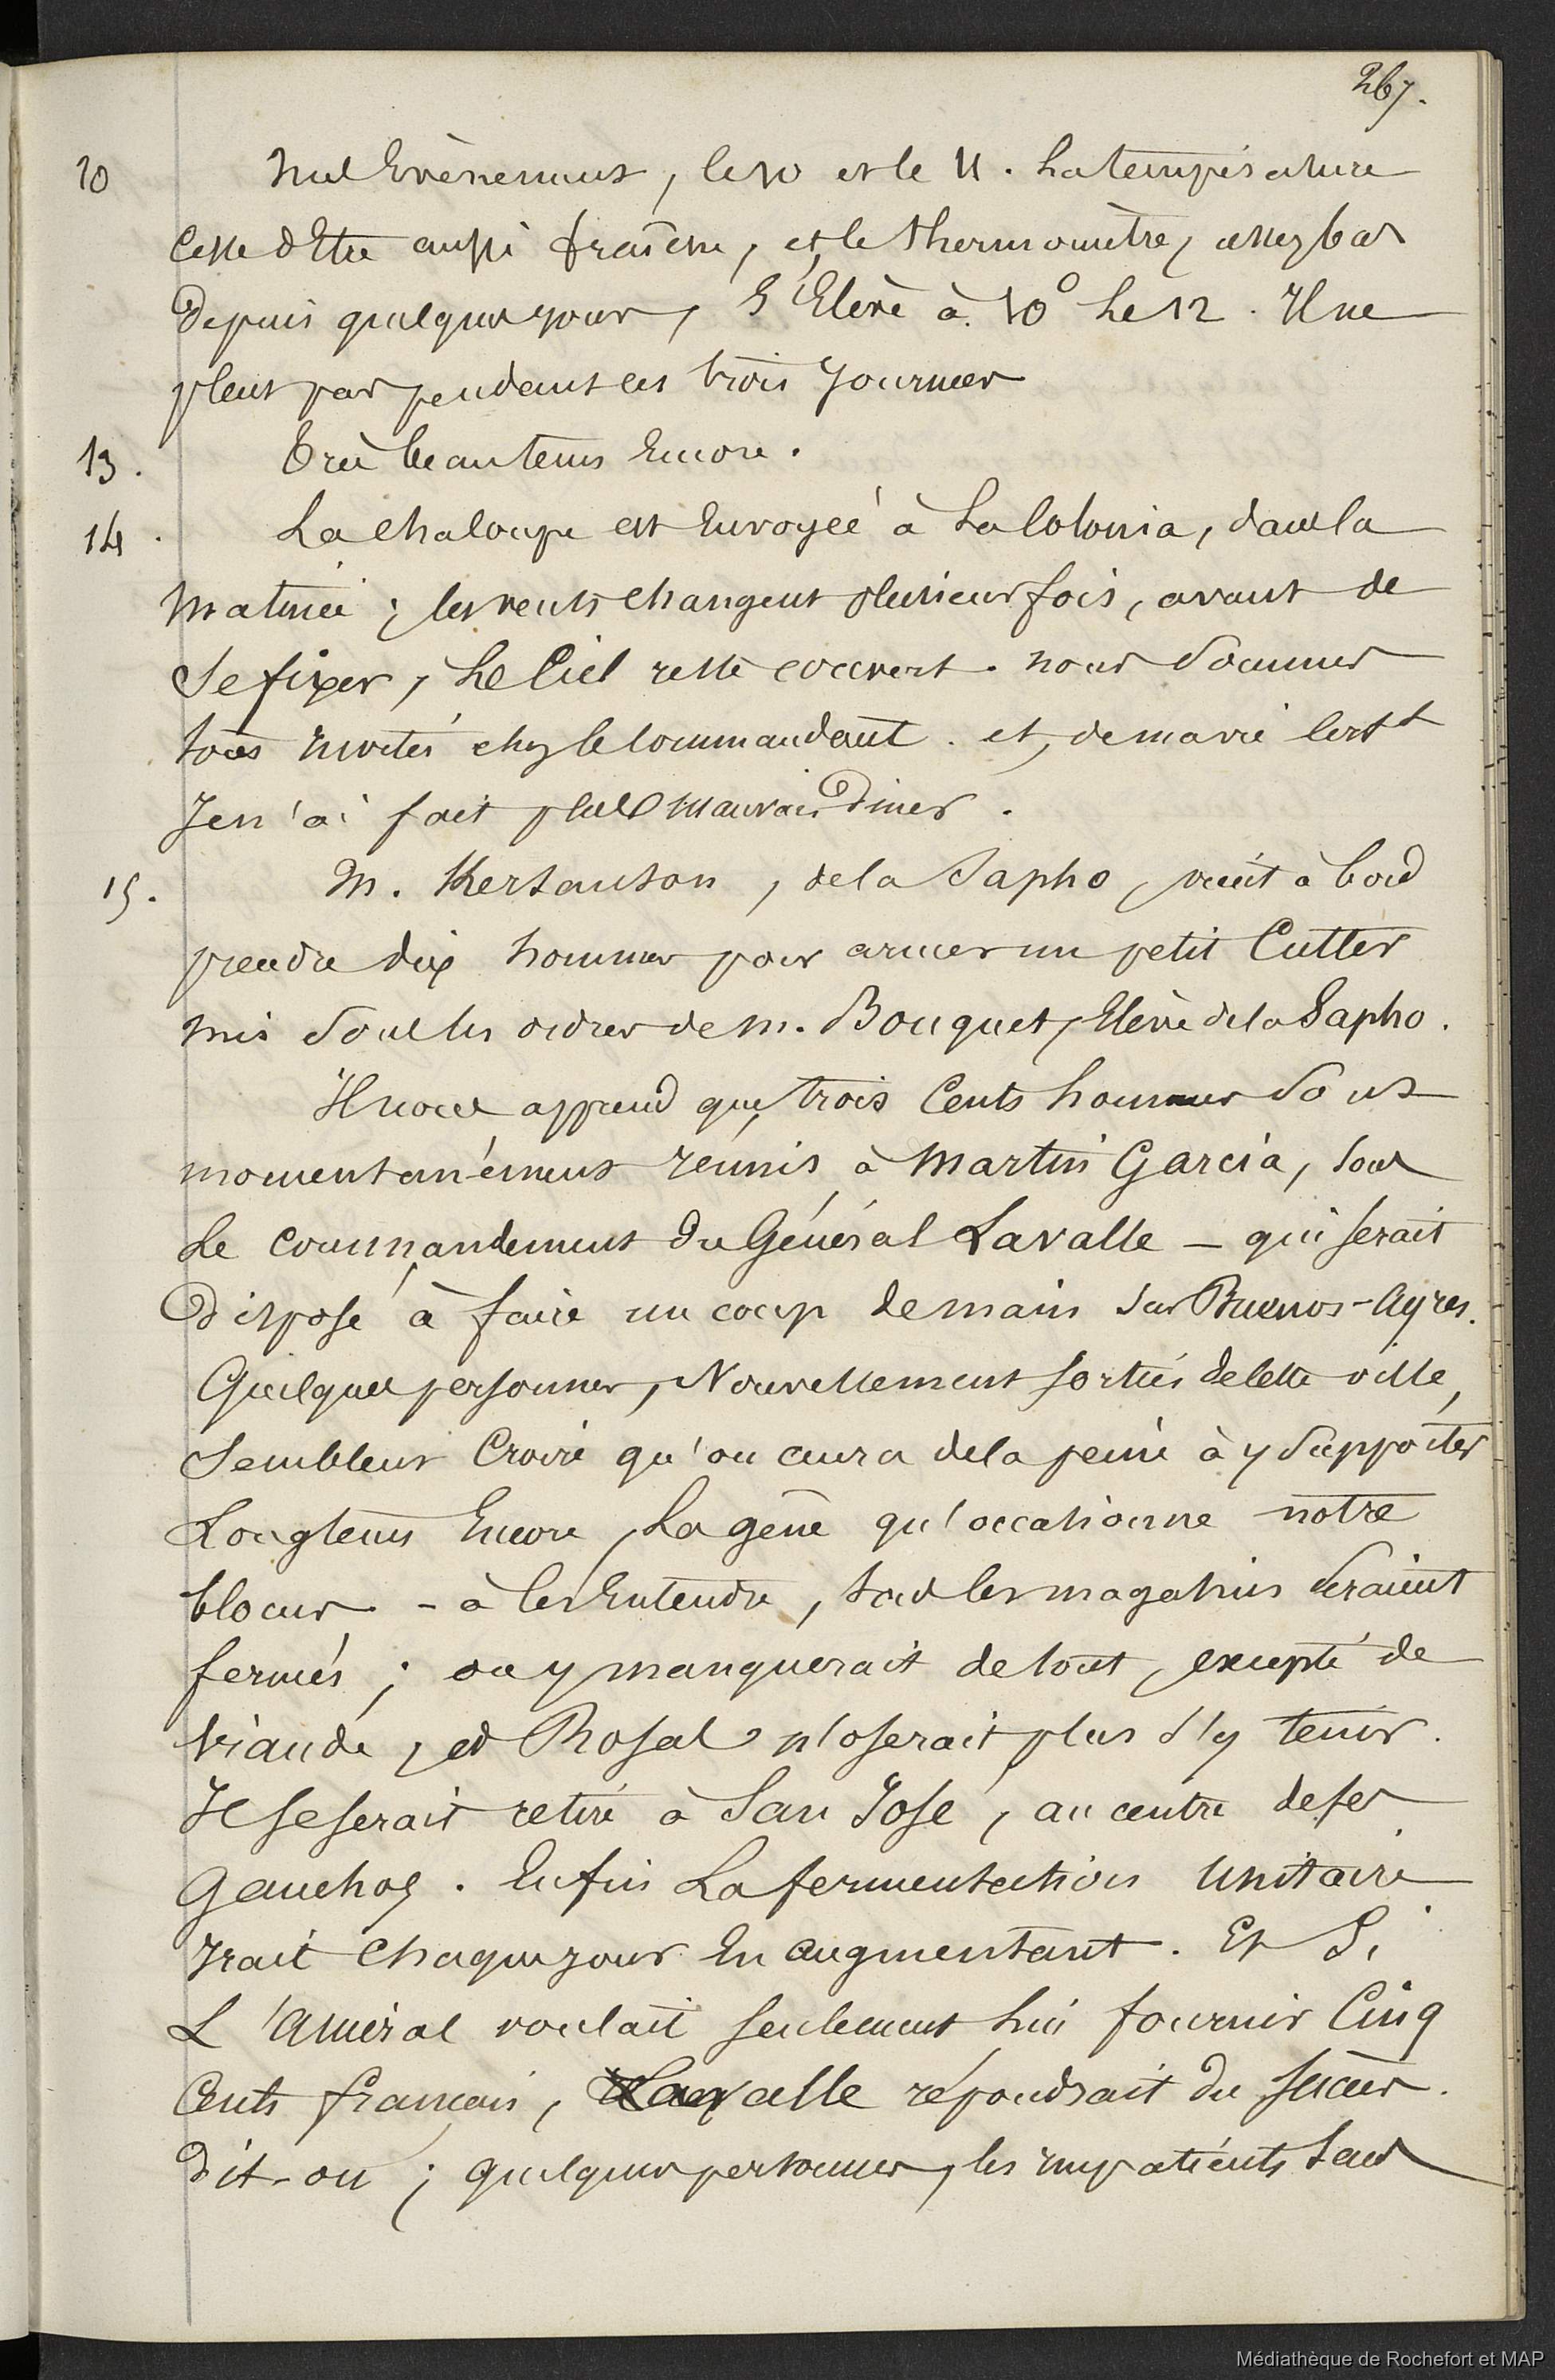 267.
10 Nul Evènement, le 10 et le 11. La température
Cesse d'Etre aussi fraîche, et le thermomètre, assez bas
Depuis quelques jours, S'Elève à 10° Le 12. Il ne
pleut pas pendant ces trois Journées
13. Très beau tems Encore.
14. La chaloupe est Envoyée à La Colonia, dans la
Matinée ; les vents changent plusieurs fois, avant de
Se fixer, Le Ciel reste couvert. nous Sommes
tous Invités chez le Commandant. et, de ma vie
Je n'ai fait plus mauvais Diner.
15. M. Kersauson, de la Sapho, vient à bord
prendre dix hommes pour armer un petit Cutter
mis Sous les ordres de M. Bouquet, Elève de la Sapho.
Il nous apprend que, trois Cents hommes Sont
momentanément réunis à Martin Garcia, Sous
Le Commandement Du Général Lavalle – qui serait
Disposé à faire un coup de main Sur Buenos-Ayres.
Quelques personnes, Nouvellement sorties de Cette ville,
Semblent Croire qu'on aura de la peine à y Supporter
Longtems Encore, La gêne qu'occasionne notre
blocus – à les Entendre, tous les magasins Seraient
fermés ; on y manquerait de tout, excepté de
Viande, et Rosas n'oserait plus S'y tenir.
Il se serait retiré à San José, au centre de ses
Gauchos. Enfin La fermentation Unitaire
Irait Chaque jour En augmentant. Et Si
L'Amiral voulait seulement Lui fournir Cinq
Cents français, Lavalle répondrait Du succès.
Dit-on ; quelques personnes, les impatients Sans
Médiathèque de Rochefort et MAP